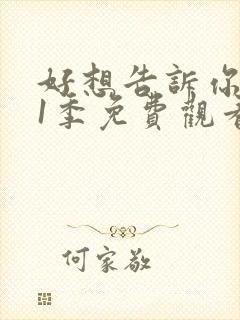 好想告訴你
1季免費觀看
何家敬